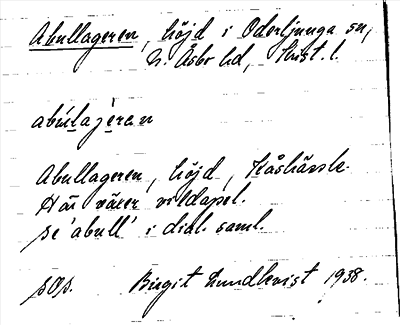 Abullageren, höjd i Oderljunga sn,
N. Åsbo hd, Krist. l.
abúlaje�loran
Abullageren, höjd, Håshävsle.
Här växer vildapel.
se 'abull' i dial. saml.
Birgit Lundkvist 1938.